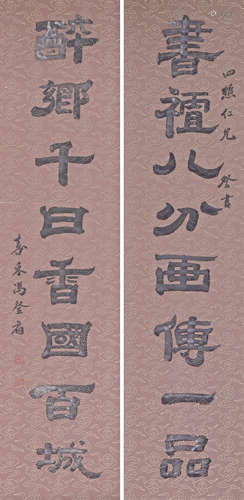 書禪八分画傳一品
四㸃仁兄 登書
醉鄉千日香國百城
壽禾馮登府